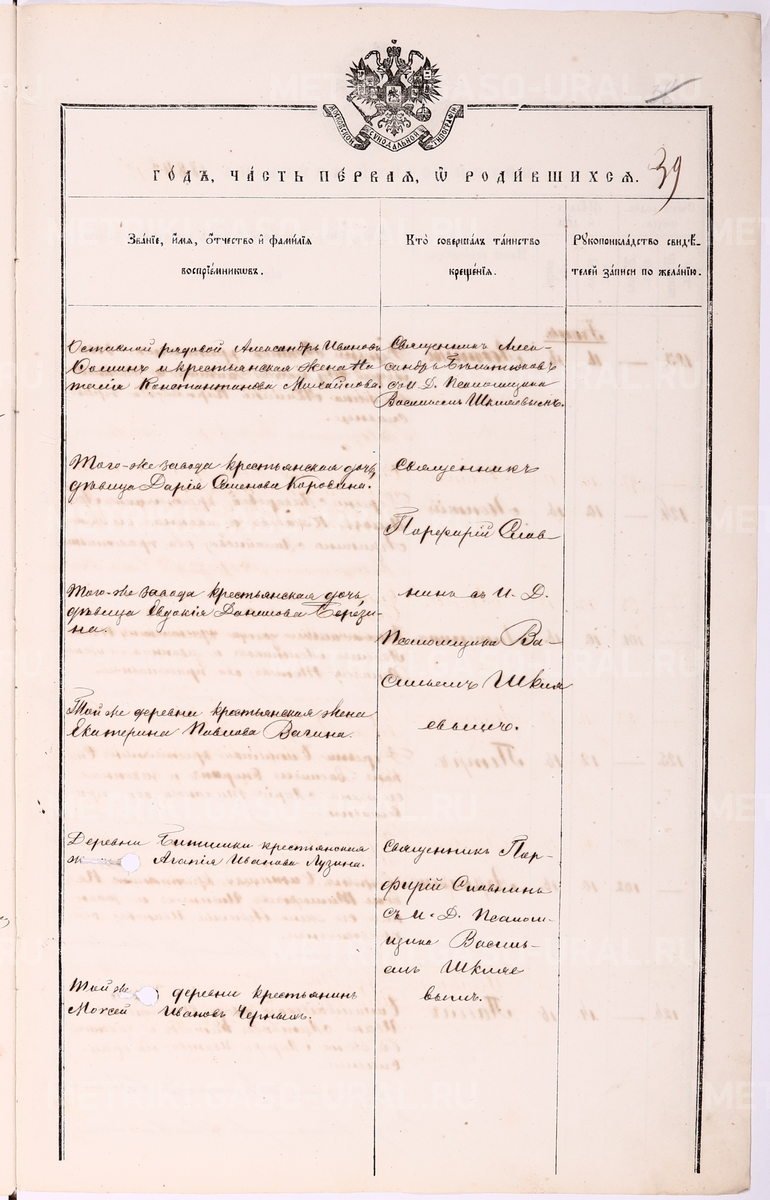 39
МОСКОВСКОЙ СѴНОДАЛЬНОЙ ТИПОГРАФІИ
ГОДЪ, ЧАСТЬ ПЕРВАЯ, Ѡ РОДИВШИХСЯ.
Званіе, имя, отчество и фамилія
воспріемниковъ.
Кто совершалъ таинство
крещенія.
Рукоприкладство свидѣ-
телей записи по желанію.
рядовой Александръ Ивановъ
и крестьянская жена На
талія Константинова Михайлова.
Священникъ Алек-
сандръ
съ И. Д. Псаломщика
Василіемъ Шкляевымъ.
Того-же завода крестьянская дочь,
дѣвица Дарія Семенова Коровина.
Священникъ
Порфирій Слав
нинъ съ И. Д.
Псаломщика Ва-
сильемъ Шкля
евымъ.
Того-же завода крестьянская дочь
дѣвица Евдокія Данилова Берези-
на.
Той же деревни крестьянская жена
Екатерина Павлова Вагина.
Деревни крестьянская
Агапія Иванова Лузина.
Священникъ Пор-
фирій Славнинъ
съ И. Д. Псалом-
щика Василь-
емъ Шкляе
вымъ.
Той же деревни крестьянинъ
Моисей Ивановъ Черныхъ.
METRIKI.GASO-URAL.RU